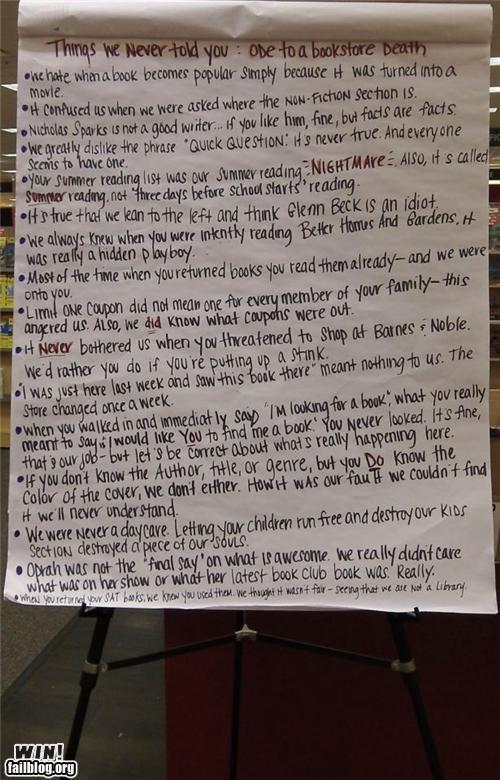 Things we Never told you : Ode to a bookstore Death
• We hate when a book becomes popular simply because it was turned into a
movie.
• It confused us when we were asked where the NON-FICTION section is.
• Nicholas Sparks is not a good writer... if you like him, fine, but facts are facts.
• We greatly dislike the phrase "QUICK QUESTION." It's never true. And everyone
seems to have one.
• Your summer reading list was our summer reading NIGHTMARE. Also, it's called
summer reading, not "three days before school starts" reading.
• It's true that we lean to the left and think Glenn Beck is an idiot.
• We always knew when you were intently reading Better Homes And Gardens, it
was really a hidden Playboy.
• Most of the time when you returned books you read them already - and we were
onto you.
• Limit ONE coupon did not mean one for every member of your family - this
angered us. Also, we did know what coupons were out.
• It Never bothered us when you threatened to shop at Barnes & Noble.
We'd rather you do if you're putting up a stink.
• "I was just here last week and saw this book there" meant nothing to us. The
store changed once a week.
• When you walked in and immediatly said "I'm looking for a book," what you really
meant to say is I would like you to find me a book. You never looked. It's fine,
that's our job - but let's be correct about what's really happening here.
• If you don't know the Author, title, or genre, but you Do know the
color of the cover, we don't either. How it was our fault we couldn't find
it we'll never understand.
• We were never a daycare. Letting your children run free and destroy our KIDS
section destroyed a piece of our souls.
• Oprah was not the "final say" on what is awesome. We really didn't care
what was on her show or what her latest book club book was. Really.
• When you returned your SAT books, we knew you used them. We thought it wasn't fair - seeing that we are not a library.
WIN!
failblog.org